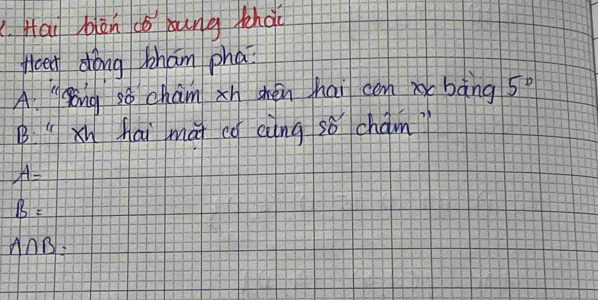 2. Hai biến cố xung khắc
Hoạt động khám phá:
A: "Tổng số chấm xh trên hai con xx bằng 5"
B: "xh hai mặt có cùng số chấm"
A=
B=
A∩B=